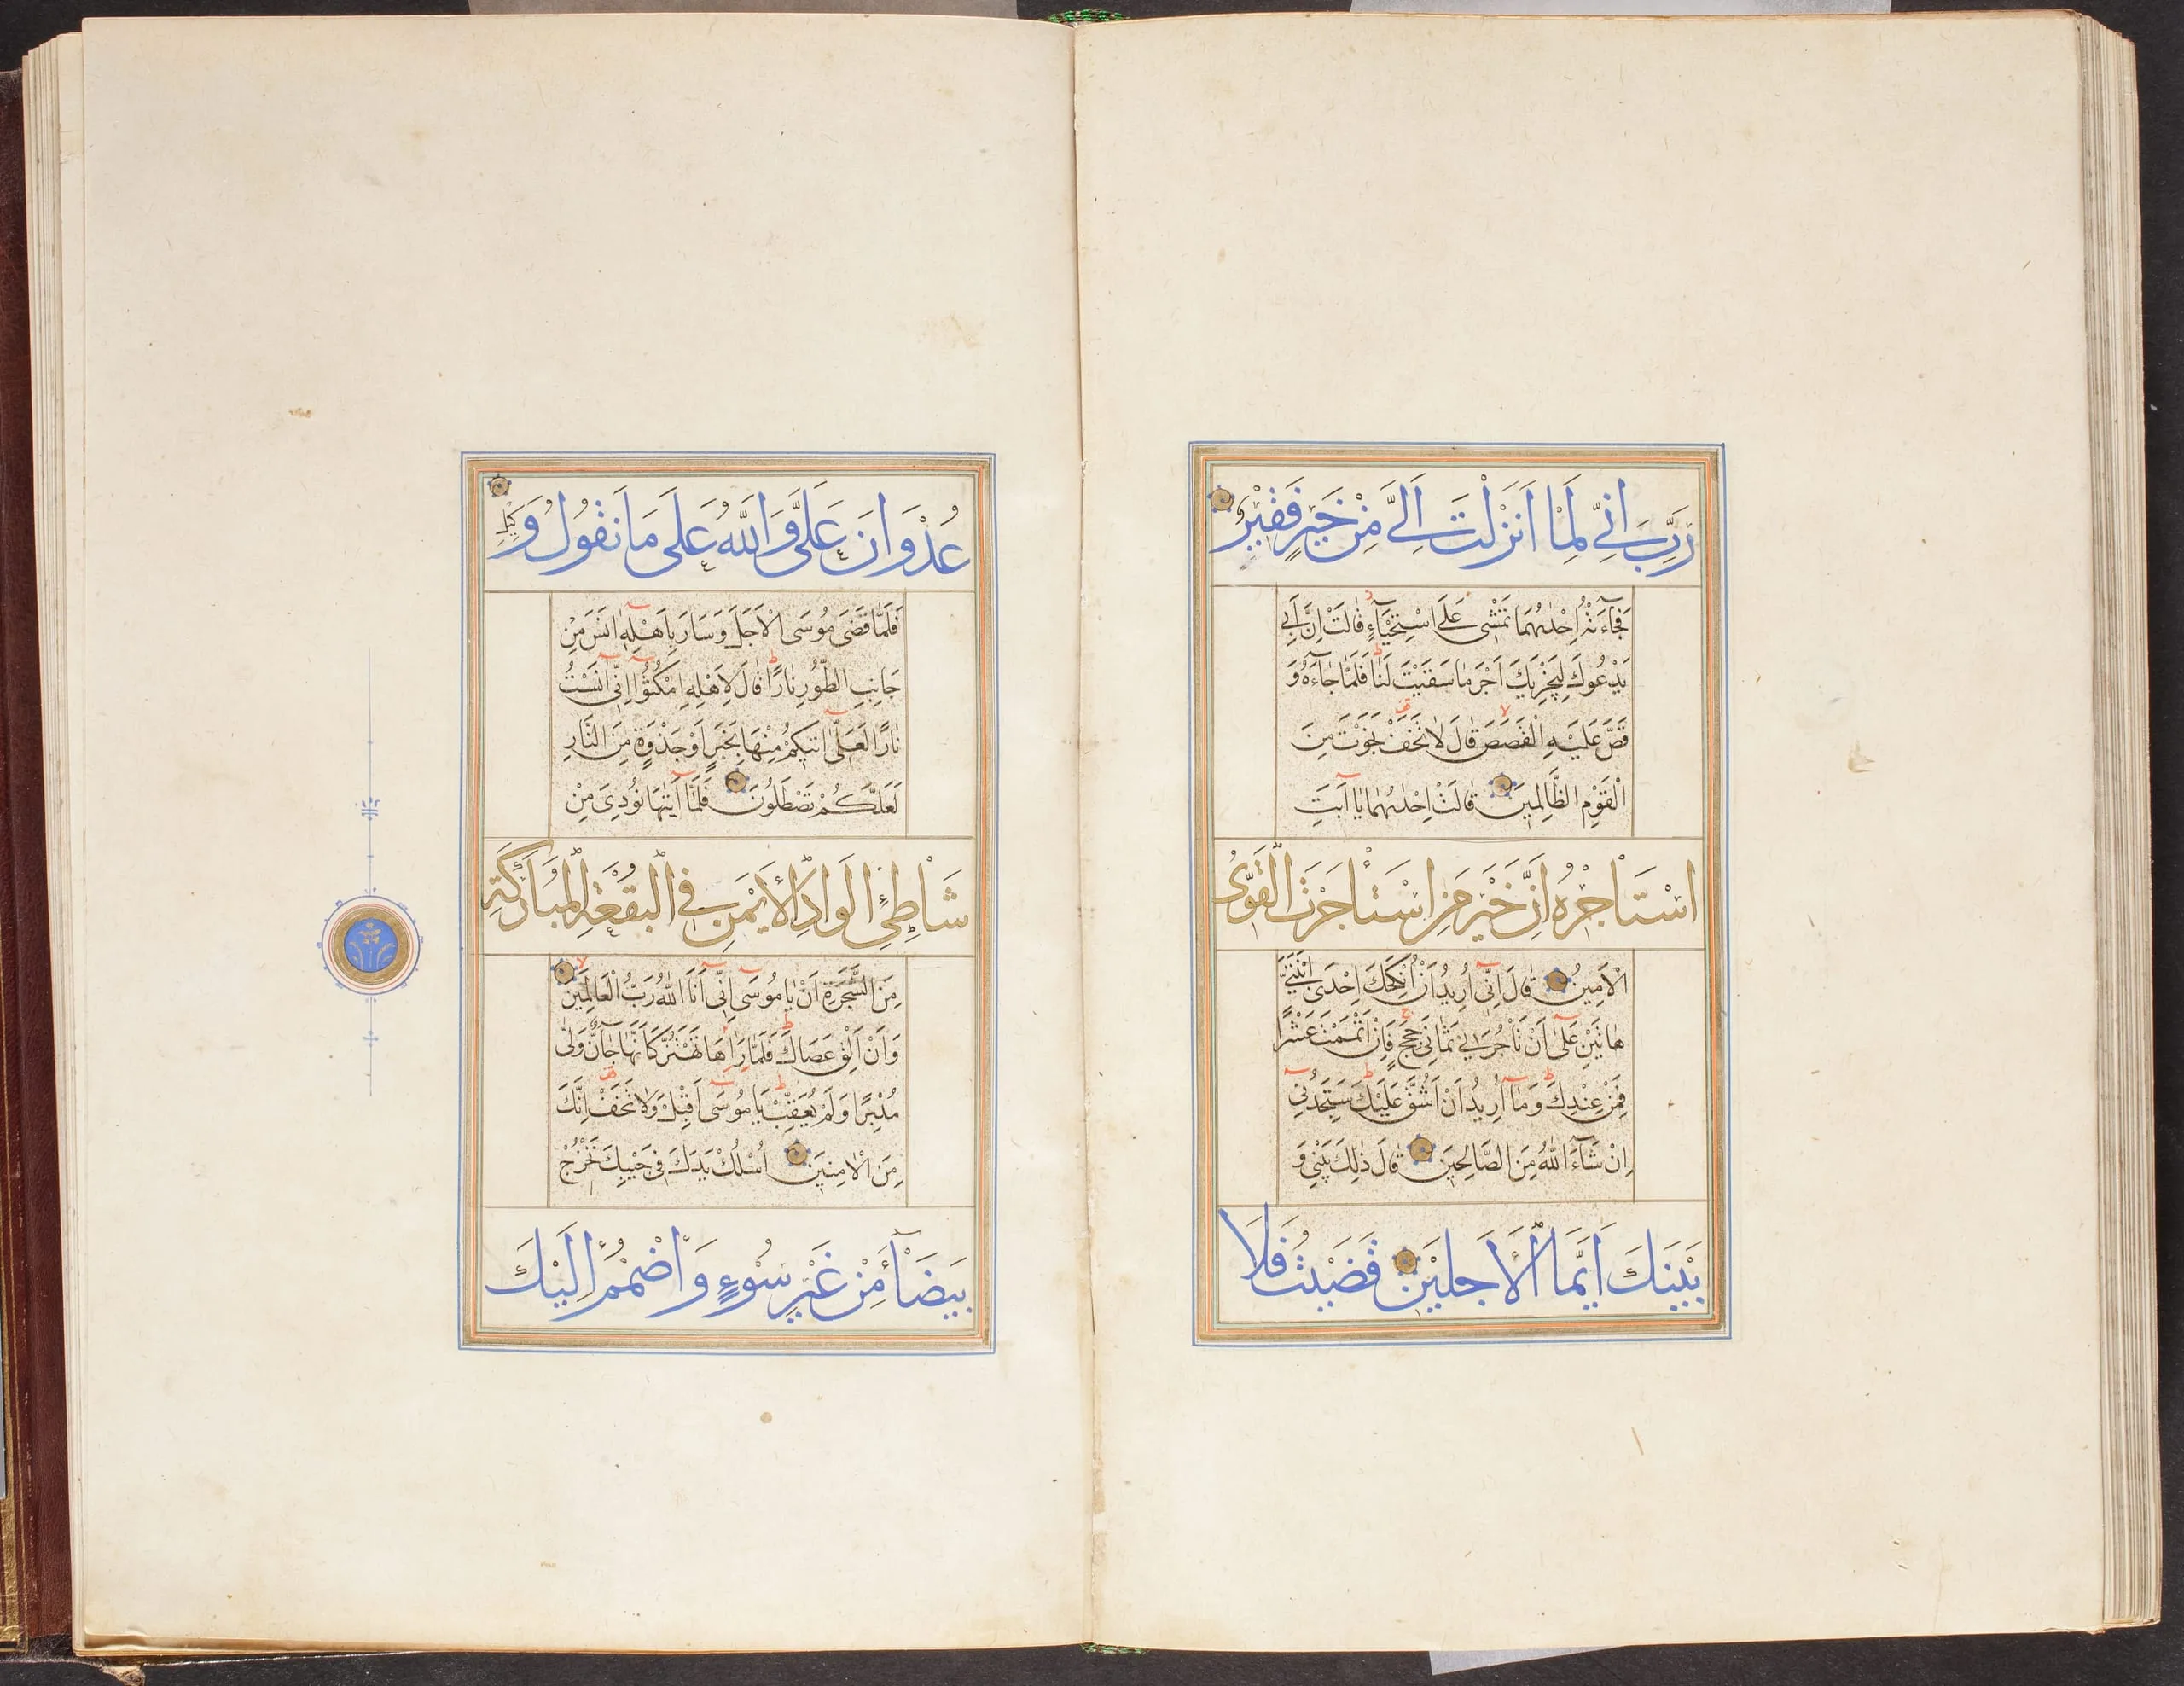 رَبِّ اِنّٖي لِمَا اَنْزَلْتَ اِلَيَّ مِنْ خَيْرٍ فَقٖيرٌ
فَجَاءَتْهُ اِحْدٰيهُمَا تَمْشٖى عَلَى اسْتِحْيَاءٍ قَالَتْ اِنَّ اَبٖي
يَدْعُوكَ لِيَجْزِيَكَ اَجْرَ مَا سَقَيْتَ لَنَا فَلَمَّا جَاءَهُ وَ
قَصَّ عَلَيْهِ الْقَصَصَ قَالَ لَا تَخَفْ نَجَوْتَ مِنَ
الْقَوْمِ الظَّالِمٖينَ قَالَتْ اِحْدٰيهُمَا يَا اَبَتِ
اسْتَأْجِرْهُ اِنَّ خَيْرَ مَنِ اسْتَأْجَرْتَ الْقَوِىُّ
الْاَمٖينُ قَالَ اِنّٖى اُرٖيدُ اَنْ اُنْكِحَكَ اِحْدَى ابْنَتَيَّ
هَاتَيْنِ عَلٰى اَنْ تَأْجُرَنٖي ثَمَانِيَ حِجَجٍ فَاِنْ اَتْمَمْتَ عَشْرًا
فَمِنْ عِنْدِكَ وَمَا اُرٖيدُ اَنْ اَشُقَّ عَلَيْكَ سَتَجِدُنٖي
اِنْ شَاءَ اللّٰهُ مِنَ الصَّالِحٖينَ قَالَ ذٰلِكَ بَيْنٖي وَ
بَيْنَكَ اَيَّمَا الْاَجَلَيْنِ قَضَيْتُ فَلَا
عُدْوَانَ عَلَيَّ وَاللّٰهُ عَلٰى مَا نَقُولُ وَكٖيلٌ
فَلَمَّا قَضٰى مُوسَى الْاَجَلَ وَسَارَ بِاَهْلِهٖ اٰنَسَ مِنْ
جَانِبِ الطُّورِ نَارًا قَالَ لِاَهْلِهِ امْكُثُوا اِنّٖى اٰنَسْتُ
نَارًا لَعَلّٖى اٰتٖيكُمْ مِنْهَا بِخَبَرٍ اَوْ جَذْوَةٍ مِنَ النَّارِ
لَعَلَّكُمْ تَصْطَلُونَ فَلَمَّا اَتٰيهَا نُودِيَ مِنْ
شَاطِئِ الْوَادِ الْاَيْمَنِ فِي الْبُقْعَةِ الْمُبَارَكَةِ
مِنَ الشَّجَرَةِ اَنْ يَا مُوسٰى اِنّٖى اَنَا اللّٰهُ رَبُّ الْعَالَمٖينَ
وَاَنْ اَلْقِ عَصَاكَ فَلَمَّا رَاٰهَا تَهْتَزُّ كَاَنَّهَا جَانٌّ وَلّٰى
مُدْبِرًا وَلَمْ يُعَقِّبْ يَا مُوسٰى اَقْبِلْ وَلَا تَخَفْ اِنَّكَ
مِنَ الْاٰمِنٖينَ اُسْلُكْ يَدَكَ فٖي جَيْبِكَ تَخْرُجْ
بَيْضَاءَ مِنْ غَيْرِ سُوءٍ وَاضْمُمْ اِلَيْكَ